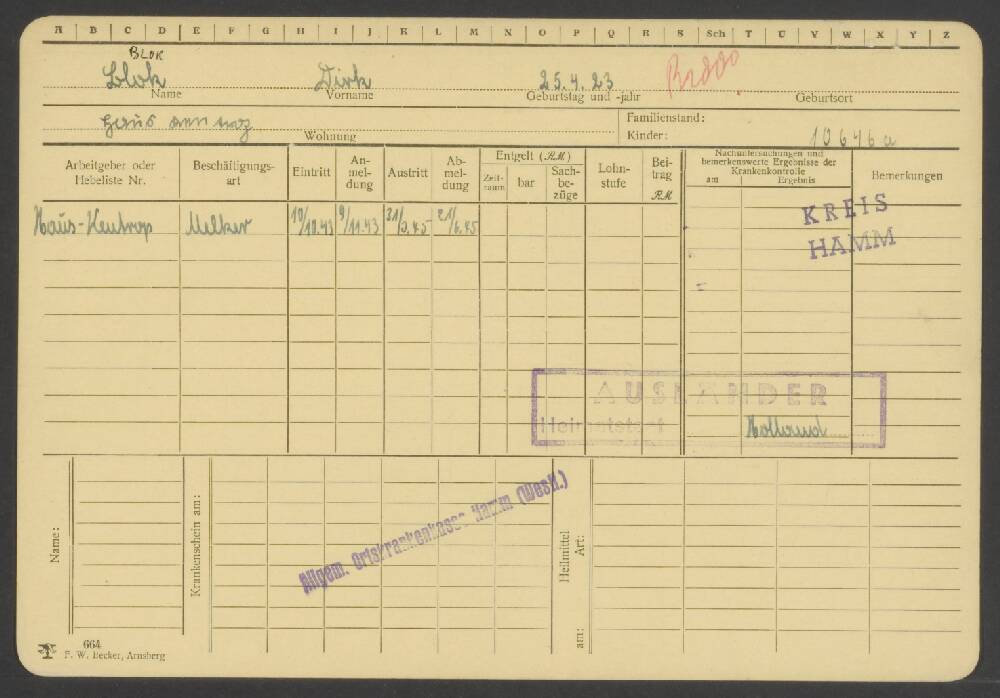 A B C D E F G H I J K L M N O P Q R S Sch T U V W X Y Z
BLOK
Blok Dirk 25.4.23
Name Vorname Geburtstag und -jahr Geburtsort
Haus
Wohnung
Familienstand:
Kinder: 10646a
Arbeitgeber oder Hebeliste Nr.
Beschäftigungsart
Eintritt
Anmeldung
Austritt
Abmeldung
Entgelt (RM)
Zeitraum
bar
Sachbezüge
Lohnstufe
Beitrag RM
Nachuntersuchungen und
bemerkenswerte Ergebnisse der
Krankenkontrolle
am Ergebnis
Bemerkungen
Haus-Kentrop Melker 10/10.43 9/11.43 31/3.45 21/6.45
KREIS
HAMM
AUSLÄNDER
Heimatstaat Holland
Name:
Krankenschein am:
Allgem. Ortskrankenkasse Hamm (Westf.)
Heilmittel
Art:
am:
664
F. W. Becker, Arnsberg